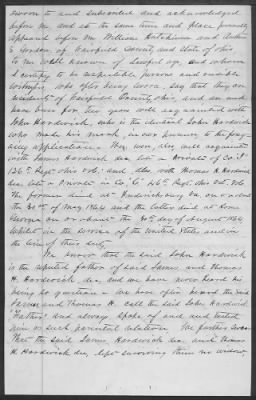 sworn to and subscribed and acknowledged
before me and at the same time and place personally
appeared before me William Hutchinson and Arthur
E. Gordon, of Fairfield County, and State of Ohio
to me well known of lawful age, and whom
I certify to be respectable persons and credible
witnesses, who after being sworn, say that they are
residents of Fairfield County, Ohio, and we
have been for ten years well acquainted with
John Hardwick, who is the identical John Hardwick
who made his mark, in our presence to the
application. They were also well acquainted
with James Hardwick dec. late a Private of Co.
126th Regt Ohio vols; and also with Thomas H. Hardwick
dec. late a Private in Co. "G" 46th Regt Ohio vol.
The former died at Fredericksburg Va. on or about
the of May 1864 and the latter died at Rome
Georgia on or about the 30th day of August 1864
whilst in the service of the United States and in
the line of their duty.
We know that the said John Hardwick
is the reputed father of said James and Thomas
H. Hardwick, dec. and we have never heard his
being so question. We have often heard the said
James and Thomas H. call the said John Hardwick
"Father" and always spoke of and treated
him in such parental relation. We further swear
that the said James Hardwick dec. and Thomas
H. Hardwick dec. left surviving them no widow,